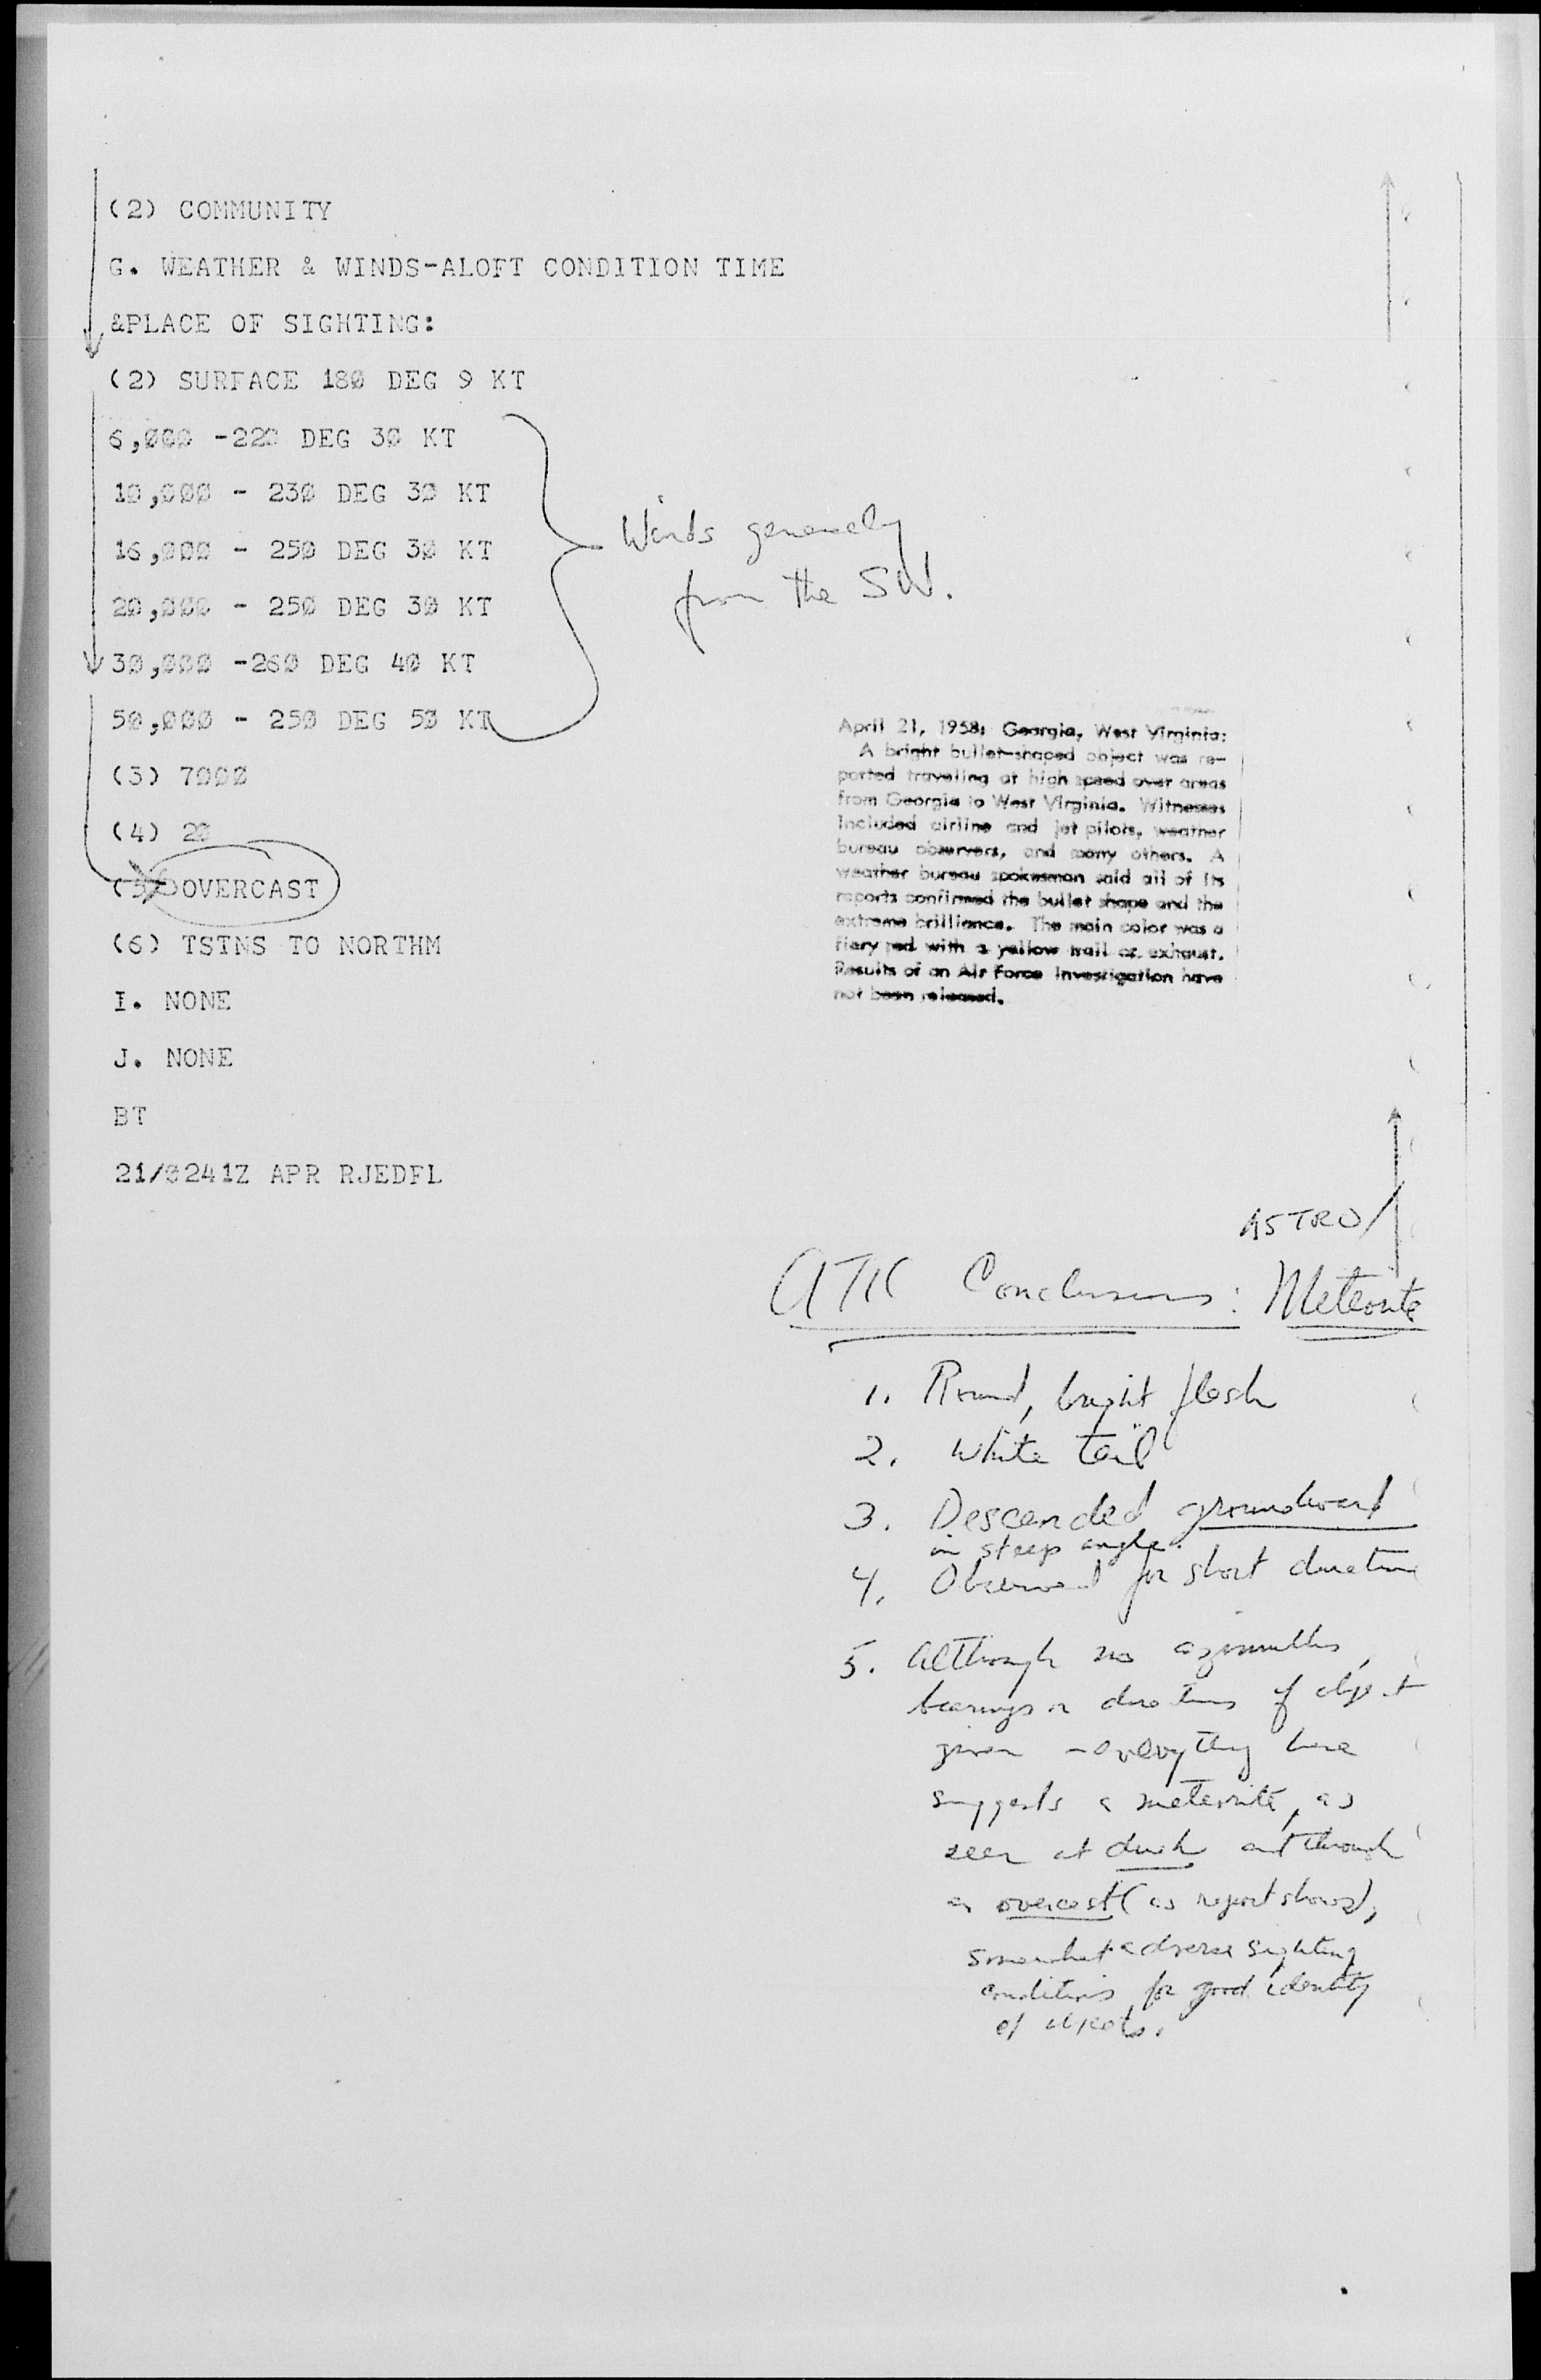 (2) COMMUNITY
G. WEATHER & WINDS-ALOFT CONDITION TIME
&PLACE OF SIGHTING:
(2) SURFACE 180 DEG 9 KT
6,000 -220 DEG 30 KT
10,000 - 230 DEG 30 KT
16,000 - 250 DEG 30 KT
20,000 - 250 DEG 30 KT
30,000 -260 DEG 40 KT
50,000 - 250 DEG 50 KT
Winds generally
from the SW.
(3) 7000
(4) 20
(5) OVERCAST
(6) TSTNS TO NORTHM
I. NONE
J. NONE
BT
21/0241Z APR RJEDFL
April 21, 1958: Georgia, West Virginia:
A bright bullet-shaped object was re-
ported traveling at high speed over areas
from Georgia to West Virginia. Witnesses
included airline and jet pilots, weather
bureau observers, and many others. A
weather bureau spokesman said all of its
reports confirmed the bullet shape and the
extreme brilliance. The main color was a
fiery red with a yellow trail or exhaust.
Results of an Air Force investigation have
not been released.
ASTRO/
ATIC Conclusions: Meteorite
1. Round, bright flash
2. White tail
3. Descended groundward
in steep angle.
4. Observed for short duration
5. Although no azimuths,
bearings or directions of object
given - everything here
suggests a meteorite, as
seen at dusk and through
an overcast (as report shows),
somewhat adverse sighting
conditions for good identity
of objects.